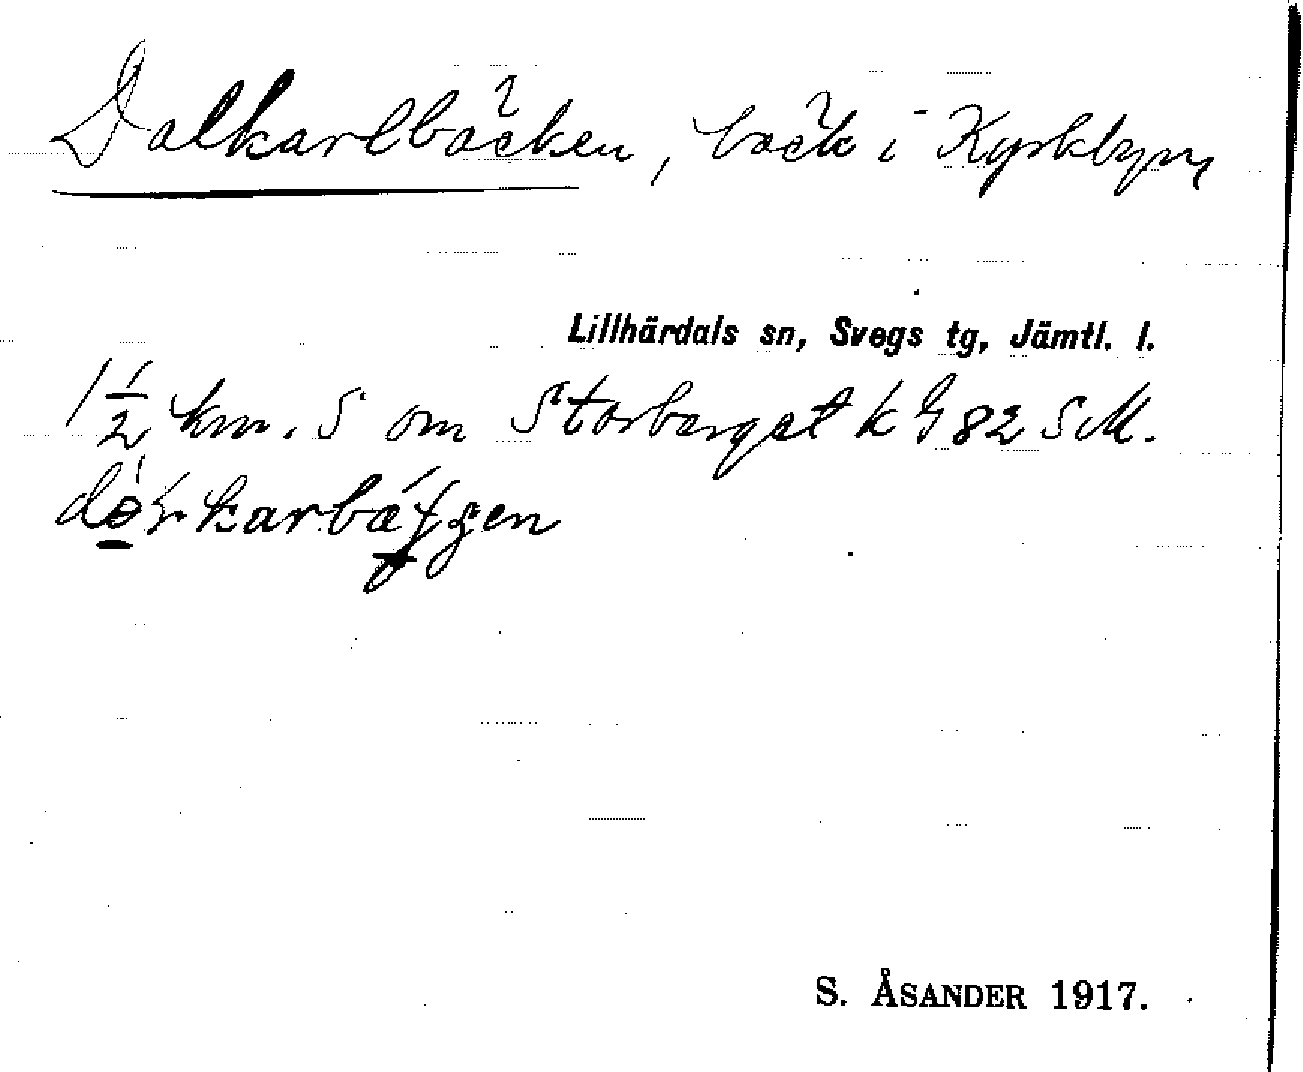 Dalkarlbäcken, bäck i Kyrkbyn,
Lillhärdals sn, Svegs tg, Jämtl. l.
1½ km. S om Storberget k G 82 SM.
S. ÅSANDER 1917.